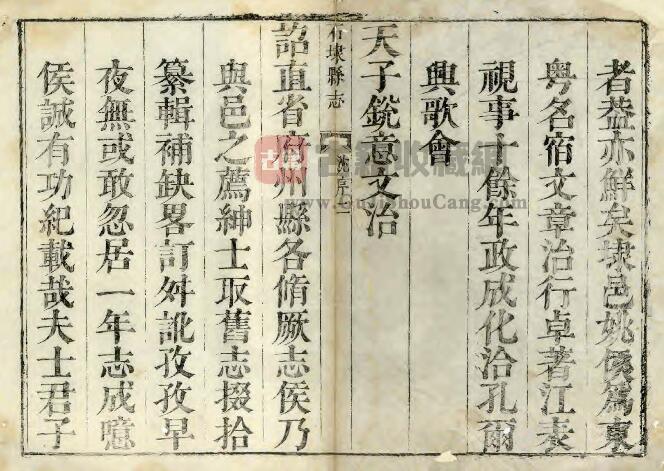 者葢亦鮮矣埭邑姚侯爲東
粤名宿文章治行卓著江表
視事十餘年政成化洽孔爾
興歌會
天子銳意文治
石埭縣志 沈序 二
詔直省府州縣各脩厥志侯乃
與邑之薦紳士取舊志掇拾
纂輯補缺畧訂舛訛孜孜早
夜無或敢忽居一年志成噫
侯誠有功紀載哉夫士君子
古籍收藏網
www.GujiShouCang.com